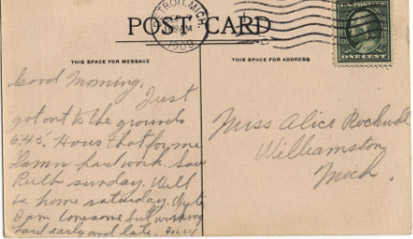 DETROIT, MICH.
1909
POST CARD
U.S. POSTAGE
ONE CENT
THIS SPACE FOR MESSAGE
THIS SPACE FOR ADDRESS
Good Morning.
Just
got out to the grounds
6.45. Hows that for me
Damn hard work. Saw
Ruth sunday. Will
be home saturday.
8 pm lonesome but working
hard early and late.
Miss Alice Rockwell
Williamston
Mich.